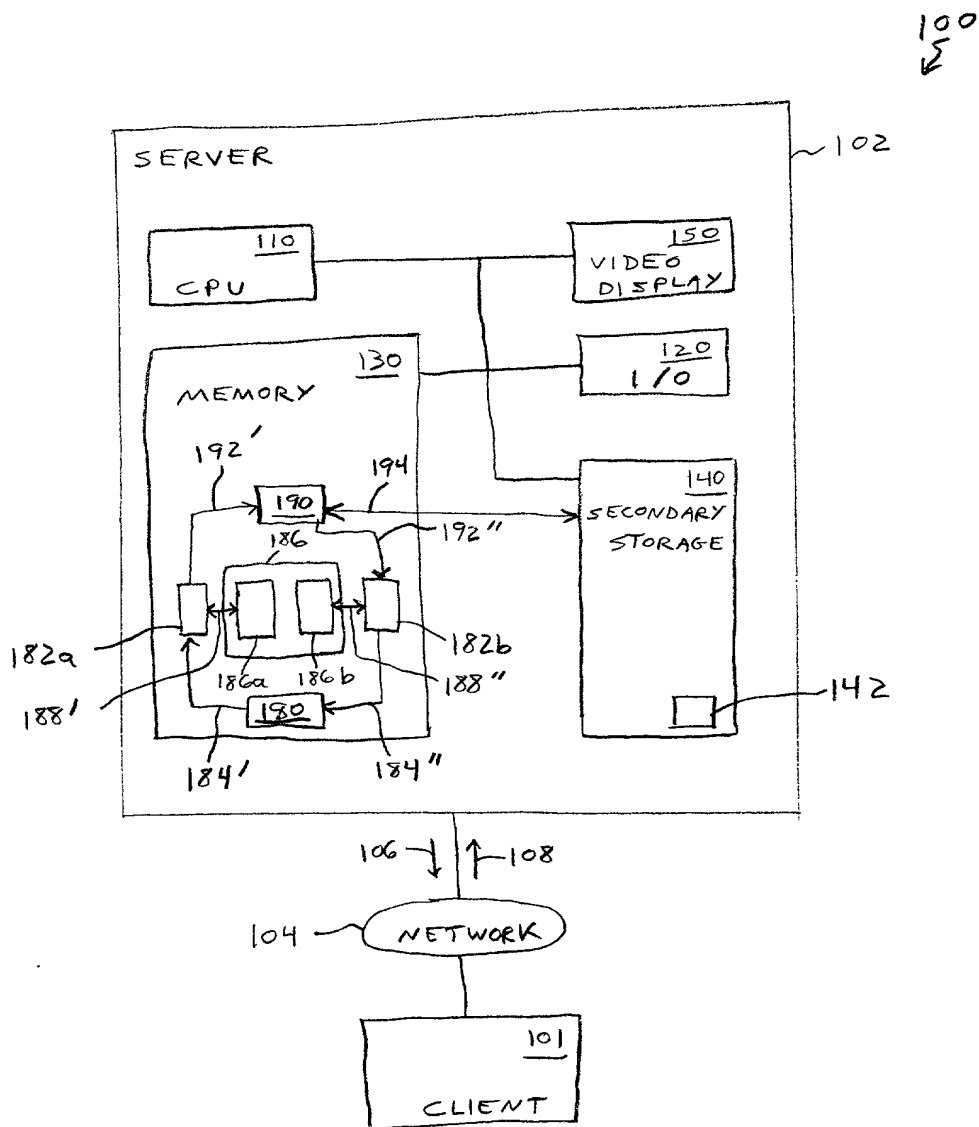 100
SERVER
102
110
CPU
150
VIDEO
DISPLAY
130
MEMORY
120
I/O
192'
194
140
SECONDARY
STORAGE
190
186
192"
182a
186a
186b
182b
188'
188"
180
142
184'
184"
106
108
104
NETWORK
101
CLIENT